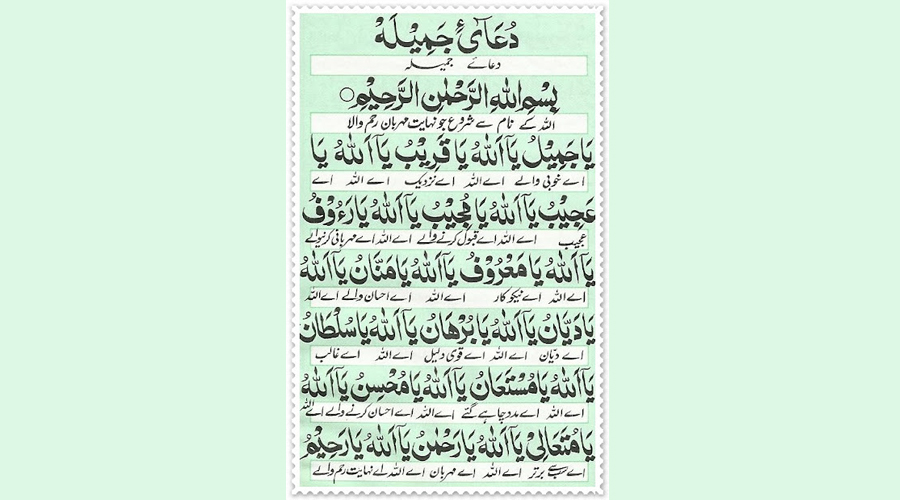 دُعَائے جَمِیْلَہْ
دعائے جمیلہ
بِسْمِ اللهِ الرَّحْمٰنِ الرَّحِيْمِ ○
اللہ کے نام سے شروع جو نہایت مہربان رحم والا
يَا جَمِيْلُ يَآ اَللهُ يَا قَرِيْبُ يَآ اَللهُ يَا
اے خوبی والے اے اللہ اے نزدیک اے اللہ اے
عَجِيْبُ يَآ اَللهُ يَا مُجِيْبُ يَآ اَللهُ يَا رَءُوْفُ
عجیب اے اللہ اے قبول کرنے والے اے اللہ اے مہربانی کرنیوالے
يَآ اَللهُ يَا مَعْرُوْفُ يَآ اَللهُ يَا مَنَّانُ يَآ اَللهُ
اے اللہ اے نیکو کار اے اللہ اے احسان والے اے اللہ
يَا دَيَّانُ يَآ اَللهُ يَا بُرْهَانُ يَآ اَللهُ يَا سُلْطَانُ
اے دیان اے اللہ اے قوی دلیل اے اللہ اے غالب
يَآ اَللهُ يَا مُسْتَعَانُ يَآ اَللهُ يَا مُحْسِنُ يَآ اَللهُ
اے اللہ اے مدد چاہے گئے اے اللہ اے احسان کرنے والے اے اللہ
يَا مُتَعَالِىْ يَآ اَللهُ يَا رَحْمٰنُ يَآ اَللهُ يَا رَحِيْمُ
اے سب سے برتر اے اللہ اے مہربان اے اللہ اے نہایت رحم والے